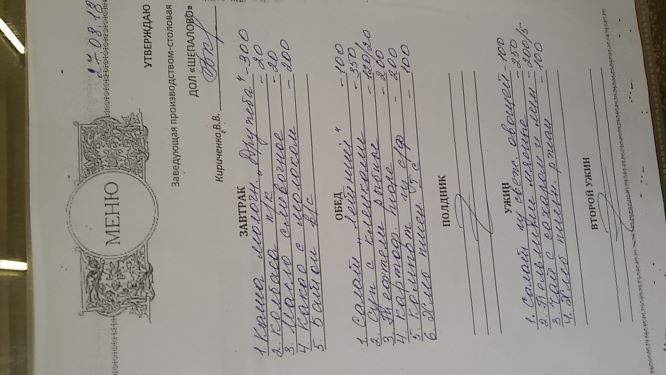 07.08.18
УТВЕРЖДАЮ
Заведующая производством-столовая
ДОЛ «ЩЕПАЛОВО»
Кириченко В.В.
МЕНЮ
ЗАВТРАК
1 Каша молочн. "Дружба" - 300
2. колбаса п/к - 20
3. Масло сливочное - 20
4 Какао с молоком - 200
5 Батон в/с
ОБЕД
1 Салат "Летний" - 100
2 Суп с клецками - 350
3 Тефтели рыбные - 120/20
4 картоф. пюре - 200
5. компот из с/ф - 200
6 Хлеб пшен 1/с - 100
ПОЛДНИК
УЖИН
1. Салат из свеж. овощей - 100
2 Пельмени мясные - 250
3 Чай с сахаром и лим - 200/5
4. Хлеб пшен. ржан - 100
ВТОРОЙ УЖИН